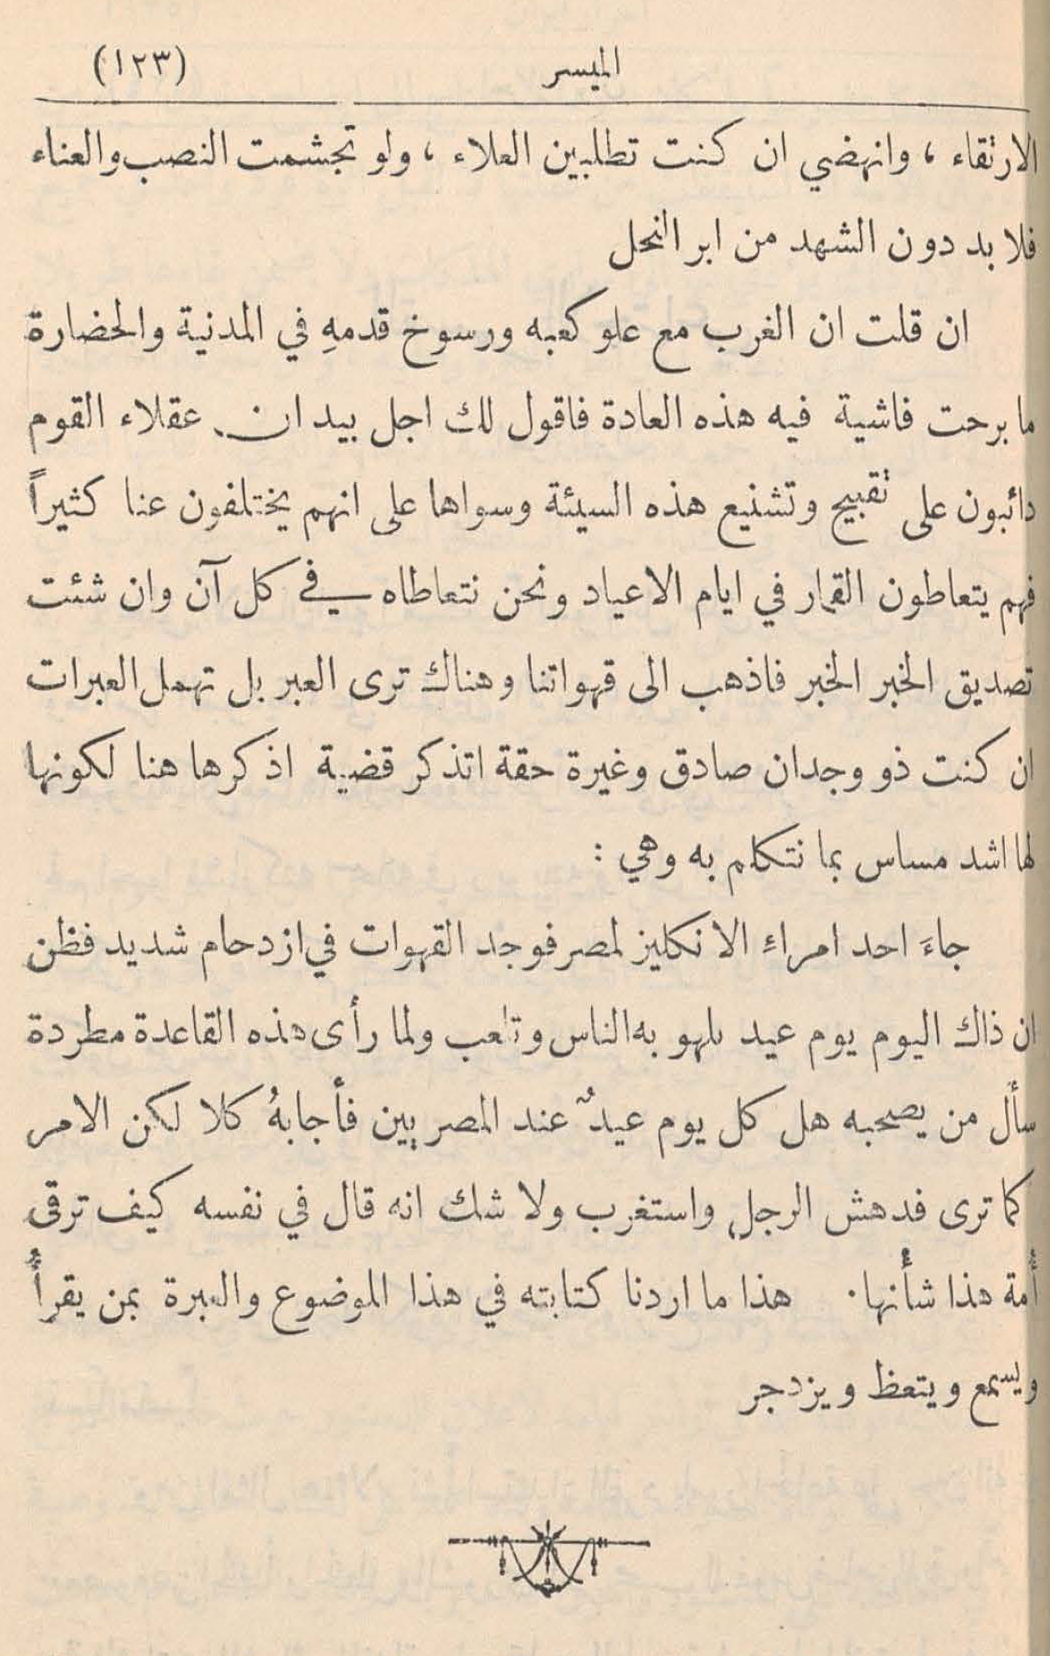 الميسر (١٢٣)
الارتقاء ، وانهضي ان كنت تطلبين العلاء ، ولو تجشمت النصب والعناء
فلا بد دون الشهد من ابر النحل
ان قلت ان الغرب مع علو كعبه ورسوخ قدمهِ في المدنية والحضارة
ما برحت فاشية فيه هذه العادة فاقول لك اجل بيد ان عقلاء القوم
دائبون على تقبيح وتشنيع هذه السيئة وسواها على انهم يختلفون عنا كثيراً
فهم يتعاطون القمار في ايام الاعياد ونحن نتعاطاه في كل آن وان شئت
تصديق الخبر الخبر فاذهب الى قهواتنا وهناك ترى العبر بل تهمل العبرات
ان كنت ذو وجدان صادق وغيرة حقة اتذكر قضية اذكرها هنا لكونها
لها اشد مساس بما نتكلم به وهي :
جاءَ احد امراءِ الانكليز لمصر فوجد القهوات في ازدحام شديد فظن
ان ذاك اليوم يوم عيد يلهو به الناس وتلعب ولما رأى هذه القاعدة مطردة
سأل من يصحبه هل كل يوم عيدٌ عند المصريين فأجابهُ كلا لكن الامر
كما ترى فدهش الرجل واستغرب ولا شك انه قال في نفسه كيف ترقى
أمة هذا شأنها . هذا ما اردنا كتابته في هذا الموضوع والعبرة بمن يقرأُ
ويسمع ويتعظ ويزدجر